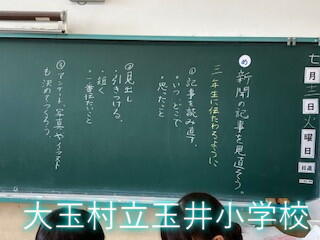 七月
三日
火
曜日
日直
め 新聞の記事を見直そう。
三年生に伝わるように
①記事を読み直す。
・いつ どこで
・思ったこと
②見出し
・引きつける。
・短く
・一番伝たいこと
③アンケート、写真やイラスト
も決めてつくろう。
大玉村立玉井小学校